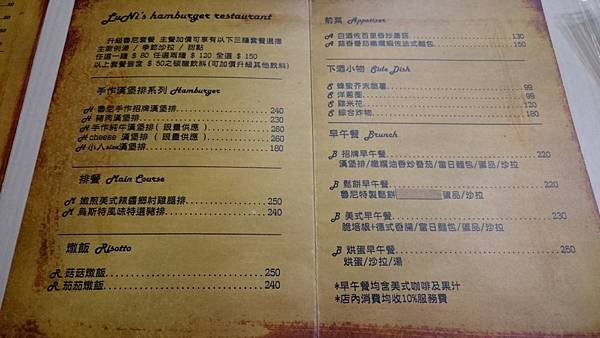 LuNi's hamburger restaurant
升級魯尼套餐 主餐加價可享有以下三種套餐選擇
主廚例湯 / 季節沙拉 / 甜點
任選一種 $ 80 任選兩種 $ 120 全選 $ 150
以上套餐皆含 $ 50之碳酸飲料(可加價升級其他飲料)
手作漢堡排系列 Hamburger
H 魯尼手作招牌漢堡排 240
H 豬肉漢堡排 230
H 手作純牛漢堡排 ( 限量供應 ) 260
H cheese 漢堡排 ( 限量供應 ) 260
H 小人size漢堡排 180
排餐 Main Course
M 嫩煎美式辣醬鄉村雞腿排 250
M 烏斯特風味特選豬排 240
燉飯 Risotto
R 菇菇燉飯 250
R 茄茄燉飯 240
前菜 Appetizer
A 白酒佐百里香炒蘑菇 130
A 蒜香番茄橄欖緹佐油式麵包 150
下酒小物 Side Dish
S 蜂蜜芥末脆薯 99
S 洋蔥圈 99
S 雞米花 120
S 綜合炸物 180
早午餐 Brunch
B 招牌早午餐 220
漢堡排/橄欖油香炒番茄/當日麵包/蛋品/沙拉
B 鬆餅早午餐 220
魯尼特製鬆餅 蛋品/沙拉
B 美式早午餐 220
脆培根+德式香腸/當日麵包/蛋品/沙拉
B 烘蛋早午餐 250
烘蛋/沙拉/湯
*早午餐均含美式咖啡及果汁
*店內消費均收10%服務費